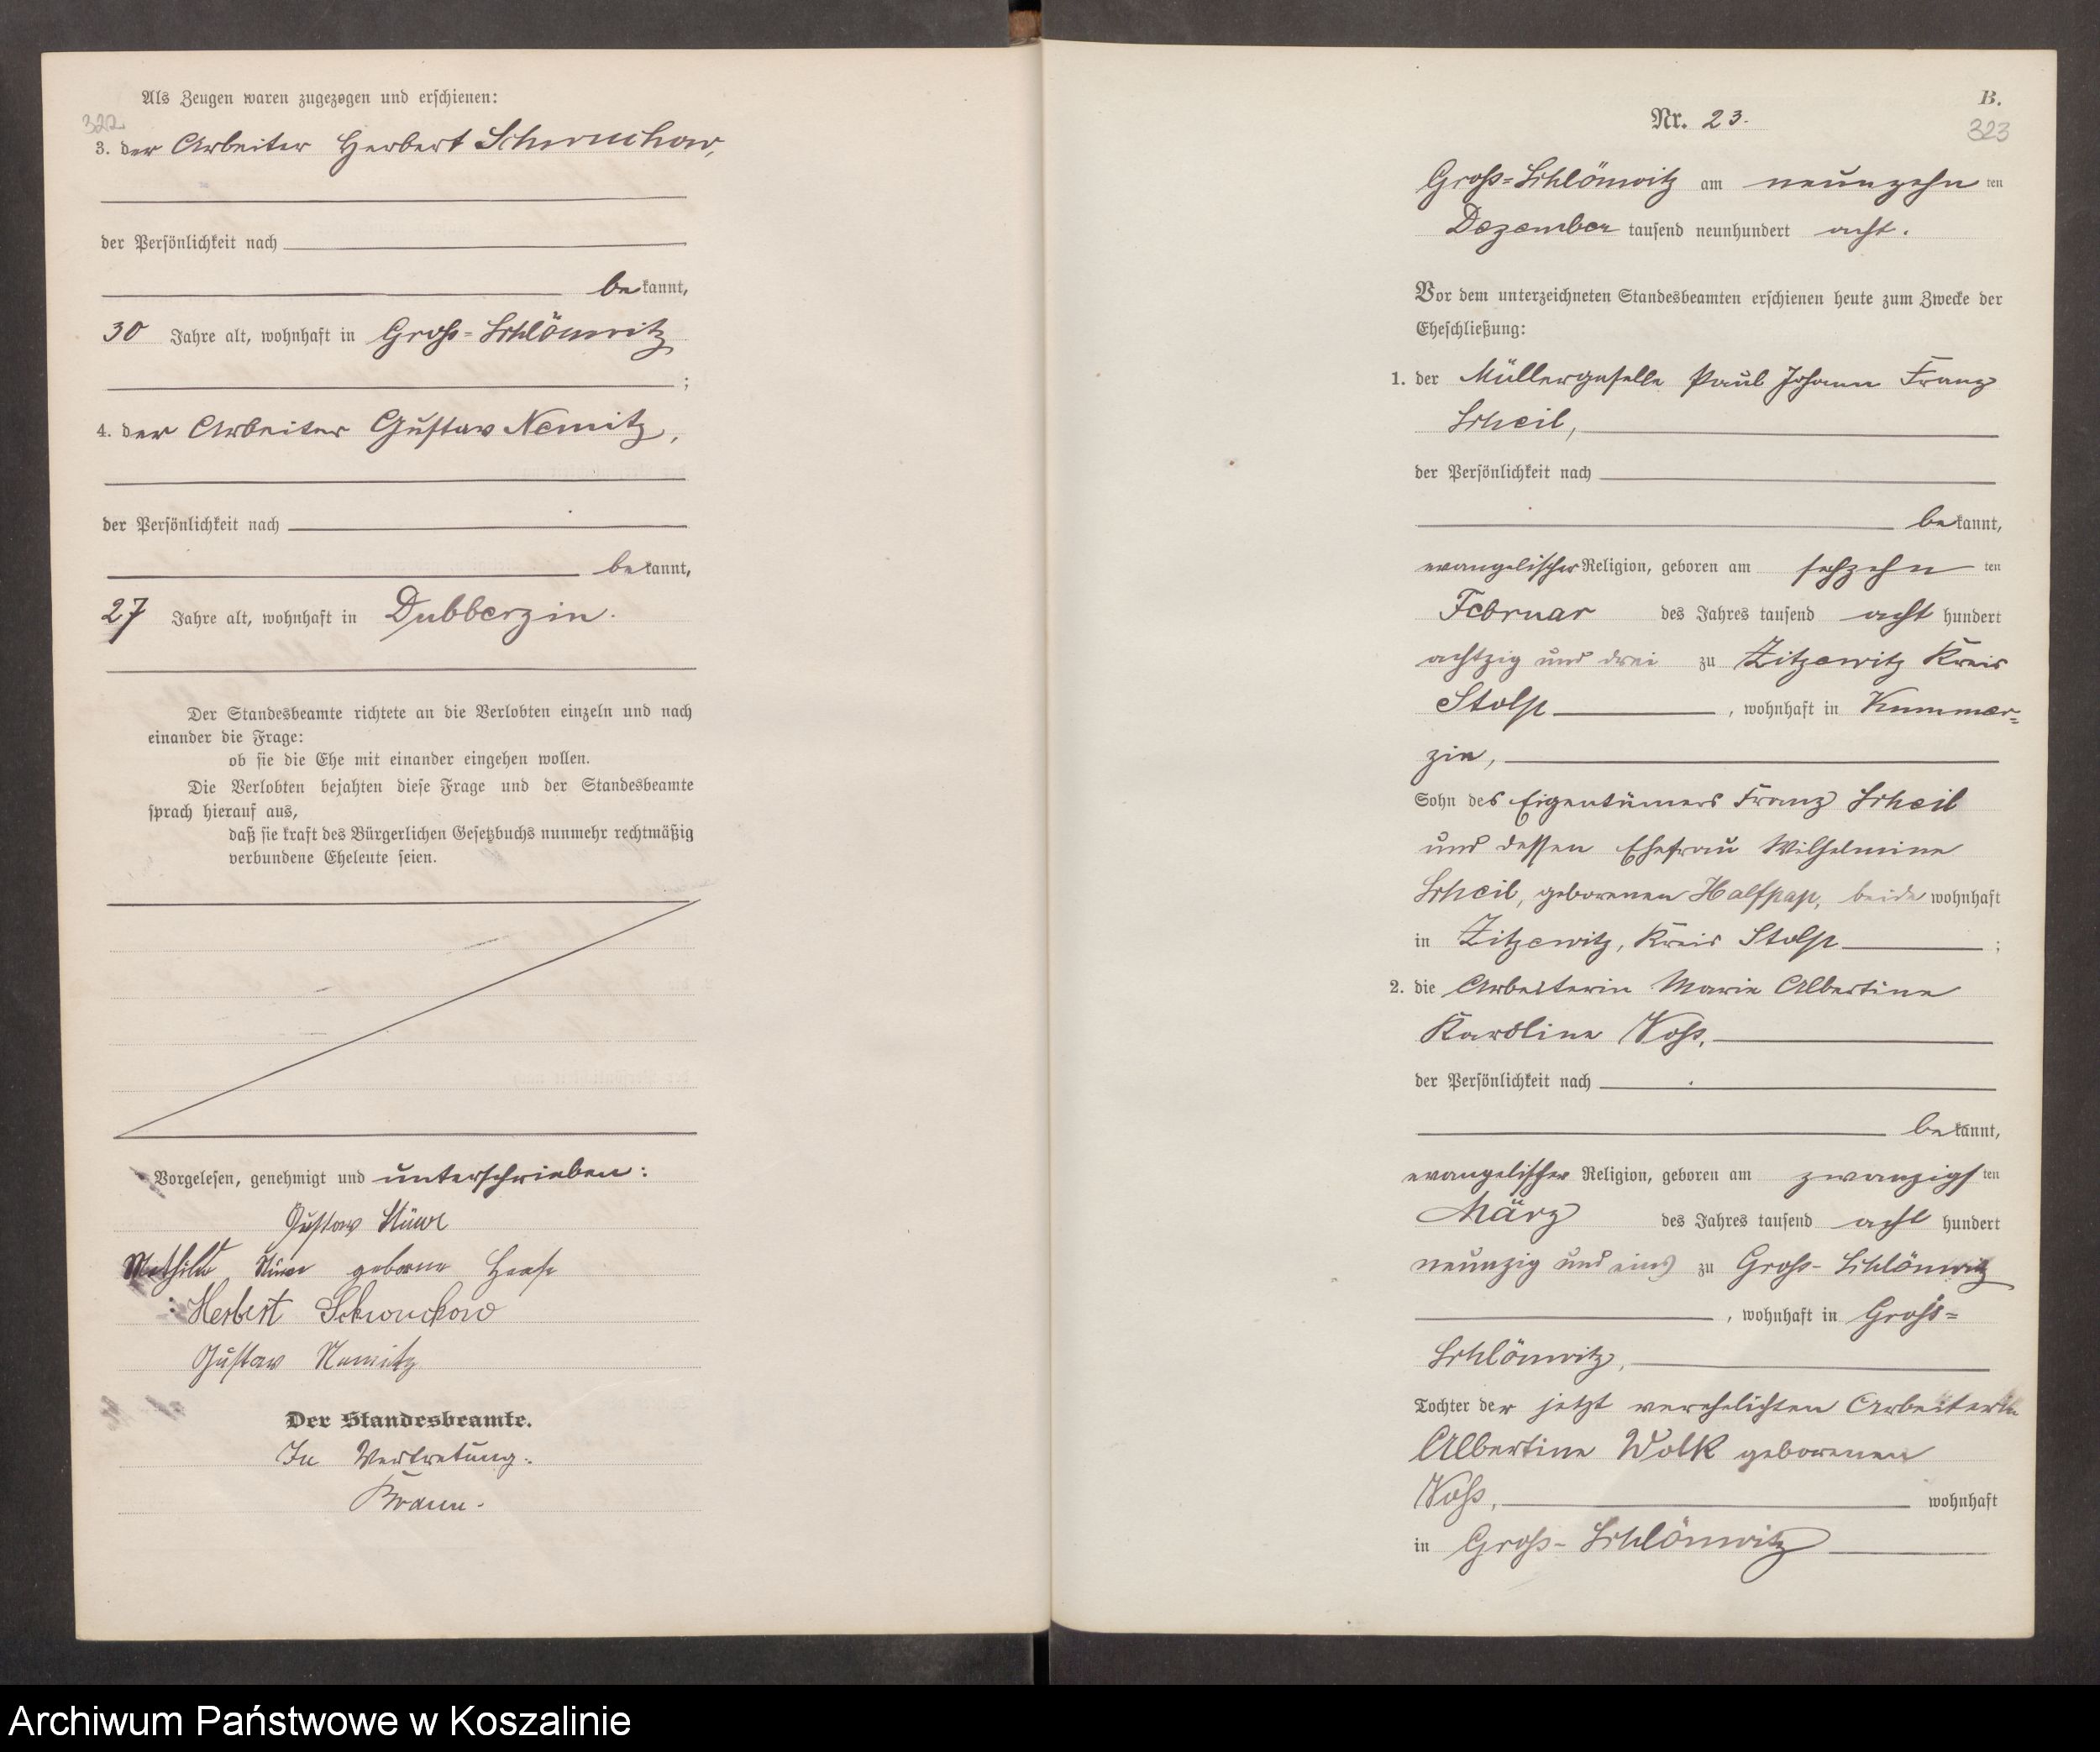 Als Zeugen waren zugezogen und erschienen:
322
3. der Arbeiter Herbert Schwuchow,
der Persönlichkeit nach
bekannt,
30 Jahre alt, wohnhaft in Gross-Schlönwitz
;
4. der Arbeiter Gustav Nemitz,
der Persönlichkeit nach
bekannt,
27 Jahre alt, wohnhaft in Dubberzin.
Der Standesbeamte richtete an die Verlobten einzeln und nach
einander die Frage:
ob sie die Ehe mit einander eingehen wollen.
Die Verlobten bejahten diese Frage und der Standesbeamte
sprach hierauf aus,
daß sie kraft des Bürgerlichen Gesetzbuchs nunmehr rechtmäßig
verbundene Eheleute seien.
Vorgelesen, genehmigt und unterschrieben:
Gustav Stüwe
Mathilde Stüwe geborne Haase
Herbert Schwuchow
Gustav Nemitz
Der Standesbeamte.
In Vertretung:
B.
Nr. 23.
323
Gross-Schlönwitz am neunzehn ten
Dezember tausend neunhundert acht.
Vor dem unterzeichneten Standesbeamten erschienen heute zum Zwecke der
Eheschließung:
1. der Müllergeselle Paul Johann Franz
Scheil,
der Persönlichkeit nach
bekannt,
evangelischer Religion, geboren am sechzehn ten
Februar des Jahres tausend acht hundert
achtzig und drei zu Zitzewitz Kreis
Stolp, wohnhaft in Kummer=
zin,
Sohn des Eigentümers Franz Scheil
und dessen Ehefrau Wilhelmine
Scheil, geborenen Halfpap, beide wohnhaft
in Zitzewitz, Kreis Stolp ;
2. die Arbeiterin Marie Albertine
Karoline Voss,
der Persönlichkeit nach
bekannt,
evangelischer Religion, geboren am zwanzigsten
März des Jahres tausend acht hundert
neunzig und eins zu Gross-Schlönwitz
, wohnhaft in Gross=
Schlönwitz,
Tochter der jetzt verehelichten Arbeiterin
Albertine Wolk geborenen
Voss, wohnhaft
in Gross-Schlönwitz
Archiwum Państwowe w Koszalinie